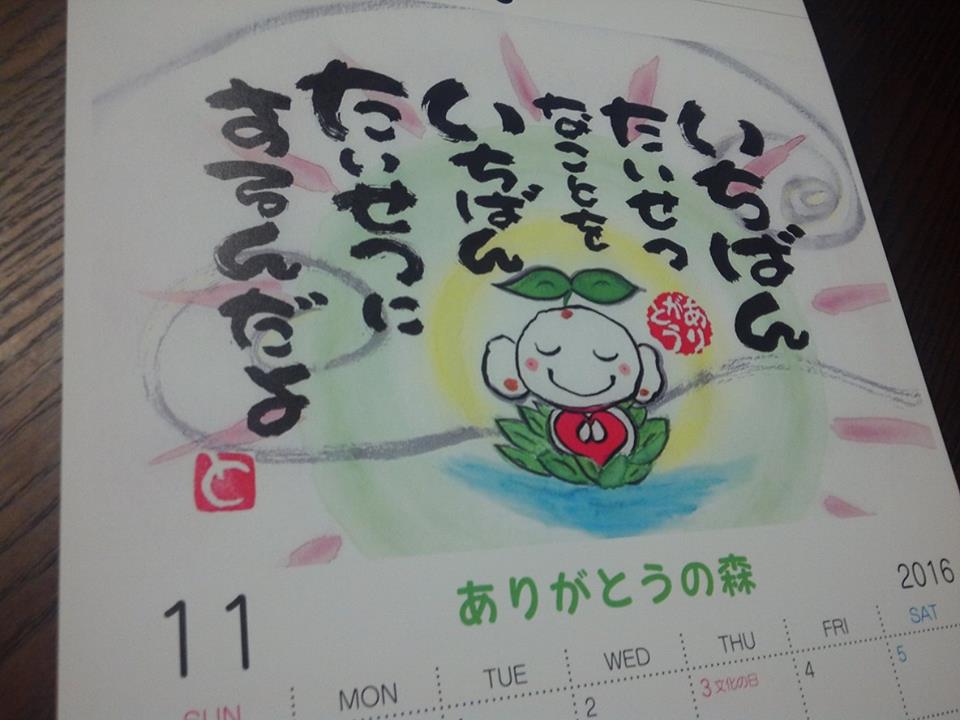 いちばん
たいせつ
なことを
いちばん
たいせつに
するんだよ
ありがとう
と
ありがとうの森
11
2016
SUN MON TUE WED THU FRI SAT
2 3 文化の日 4 5